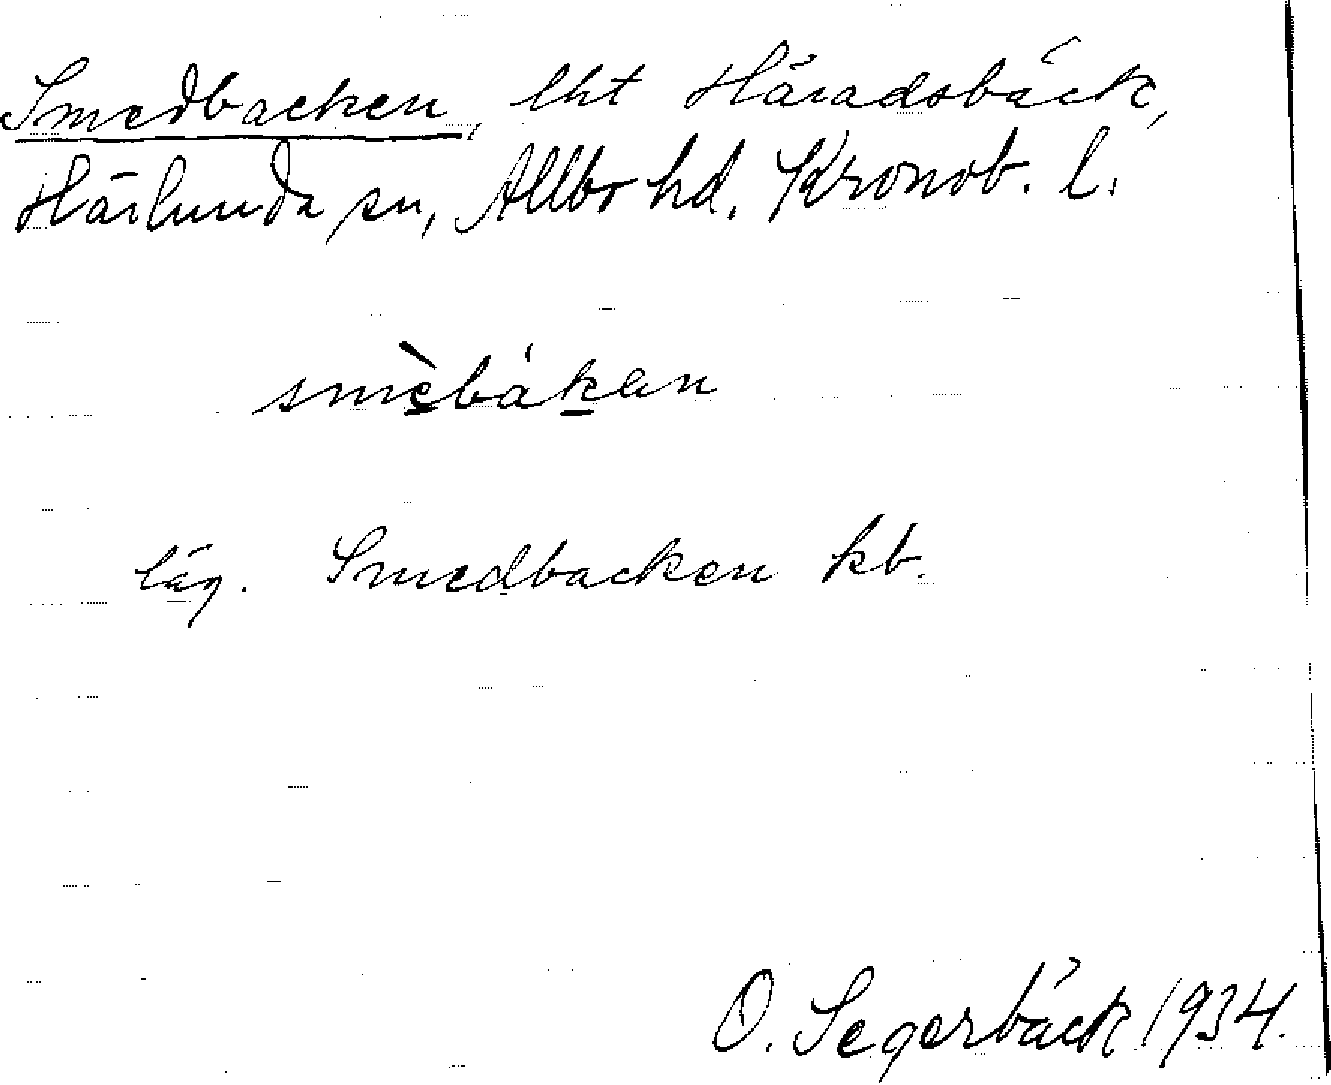 Smedbacken, lht Häradsbäck,
Härlunda sn, Allbo hd. Kronob. l.
smèbákan
läg. Smedbacken kb.
O. Segerbäck 1934.